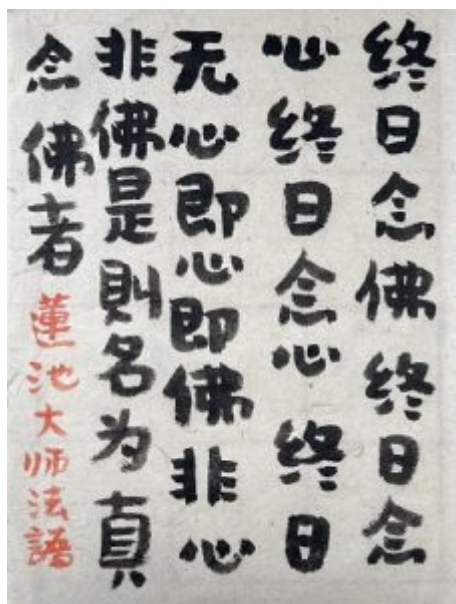 终日念佛终日念
心终日念心终日
无心即心即佛非心
非佛是則名为真
念佛者蓮池大师法語